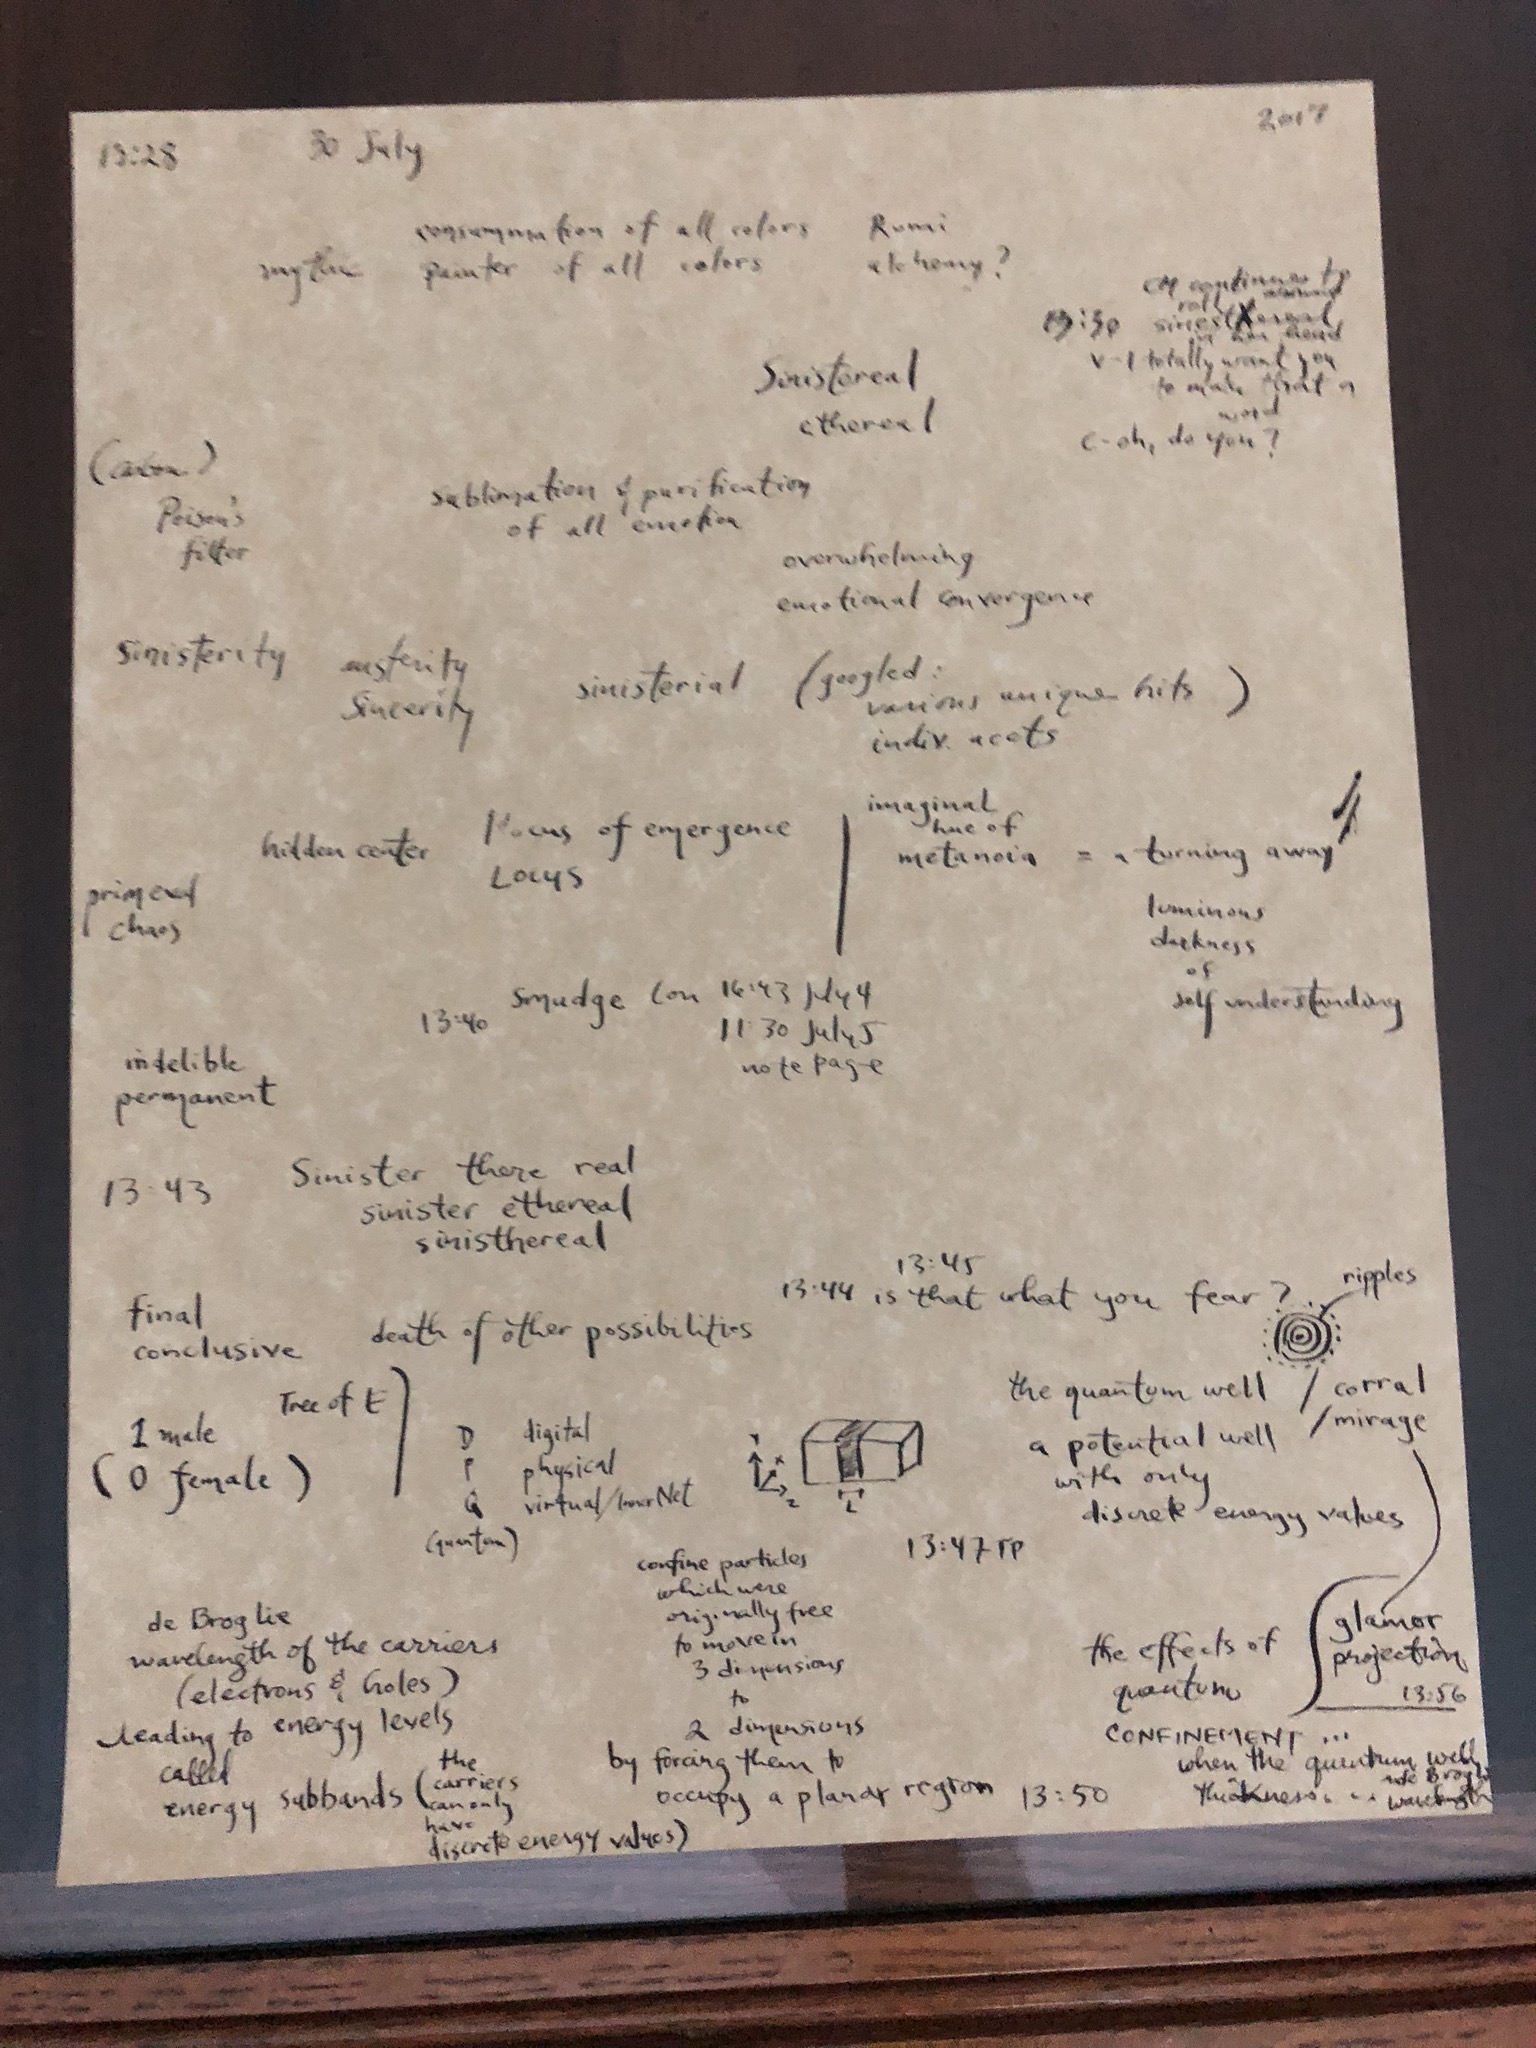 13:28 30 July 2017
consummation of all colors Rumi
mythic painter of all colors alchemy?
CM continues to
roll around
13:30 sinesthereal
in her head
v-I totally want you
to make that a
word
c-oh, do you?
Sinistereal
ethereal
(carbon)
Poison's
filter
sublimation & purification
of all emotion
overwhelming
emotional convergence
sinisterity austerity
sincerity
sinisterial (googled:
various unique hits)
indiv. accts
hidden center Focus of emergence
LOCUS
imaginal
hue of
metanoia = a turning away
primeval
chaos
luminous
darkness
of
self understanding
13:40 smudge (on 16:43 July 4
11:30 July 5
note page
indelible
permanent
13:43 Sinister there real
sinister ethereal
sinisthereal
13:45
13:44 is that what you fear?
ripples
final
conclusive
death of other possibilities
1 male
(0 female)
Tree of E
D digital
P physical
Q virtual/InnerNet
(quantum)
Y
X
Z
L
the quantum well / corral
/mirage
a potential well
with only
discrete energy values
13:47 TP
confine particles
which were
originally free
to move in
3 dimensions
to
2 dimensions
by forcing them to
occupy a planar region 13:50
glamor
projection
13:56
the effects of
quantum
CONFINEMENT ...
when the quantum well
thickness ... ≈ de Broglie
wavelength
de Broglie
wavelength of the carriers
(electrons & holes)
leading to energy levels
called
energy subbands (the
carriers
can only
have
discrete energy values)